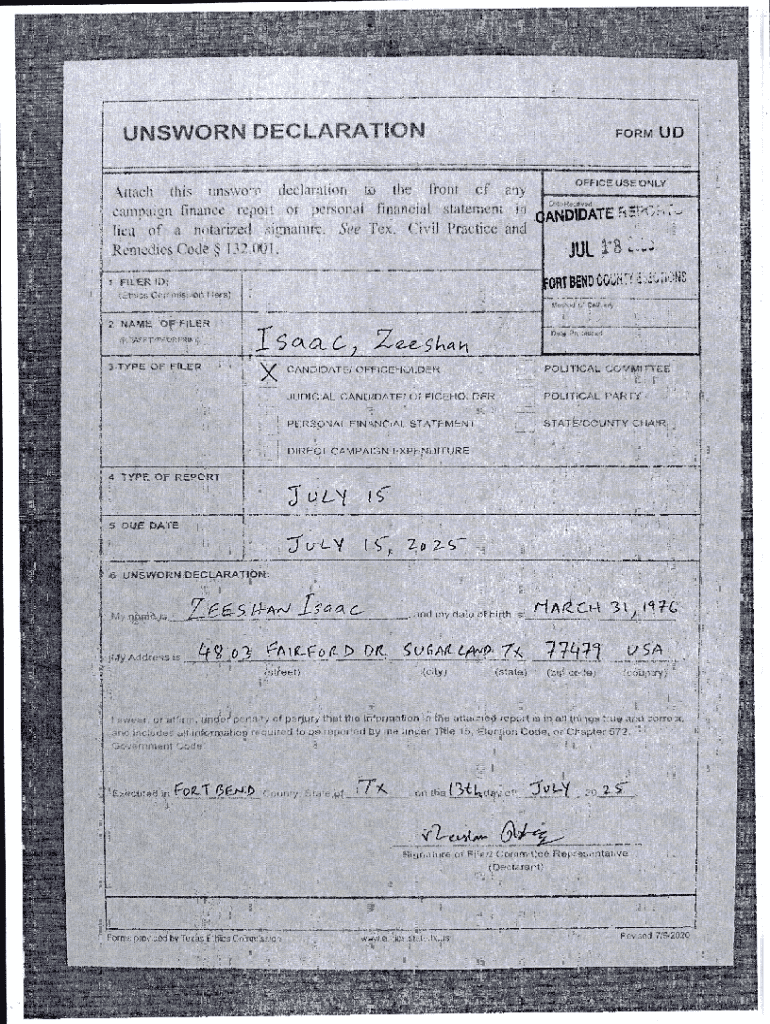 UNSWORN DECLARATION
FORM UD
Attach this unsworn declaration to the front of any
campaign finance report or personal financial statement in
lieu of a notarized signature. See Tex. Civil Practice and
Remedies Code § 132.001.
OFFICE USE ONLY
Date Received
CANDIDATE REPORTS
JUL 18
FORT BEND COUNTY ELECTIONS
Date Processed
1 FILER ID:
(Ethics Commission filers)
2 NAME OF FILER
Isaac, Zeeshan
3 TYPE OF FILER
X CANDIDATE/OFFICEHOLDER
POLITICAL COMMITTEE
JUDICIAL CANDIDATE/OFFICEHOLDER
POLITICAL PARTY
PERSONAL FINANCIAL STATEMENT
STATE/COUNTY CHAIR
DIRECT CAMPAIGN EXPENDITURE
4 TYPE OF REPORT
JULY 15
5 DUE DATE
JULY 15, 2025
6 UNSWORN DECLARATION:
My name is ZEESHAN Isaac and my date of birth is MARCH 31, 1976
My Address is 4803 FAIRFORD DR. SUGARLAND TX 77479 USA
(street) (city) (state) (zip code) (country)
I swear, or affirm, under penalty of perjury that the information in the attached report is in all things true and correct,
and includes all information required to be reported by me under Title 15, Election Code, or Chapter 572,
Government Code
Executed in FORT BEND County, State of TX on the 13th day of JULY 2025
Signature of Filer/Committee Representative
(Declarant)
Forms provided by Texas Ethics Commission
Revised 7/5/2020